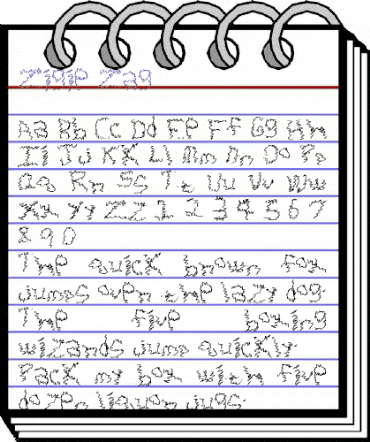 Zigie Zag
Aa Bb Cc Dd Ee Ff Gg Hh
Ii Jj Kk Ll Mm Nn Oo Pp
Qq Rr Ss Tt Uu Vv Ww
Xx Yy Zz 1 2 3 4 5 6 7
8 9 0
The quick brown fox
jumps over the lazy dog.
The five boxing
wizards jump quickly.
Pack my box with five
dozen liquor jugs.